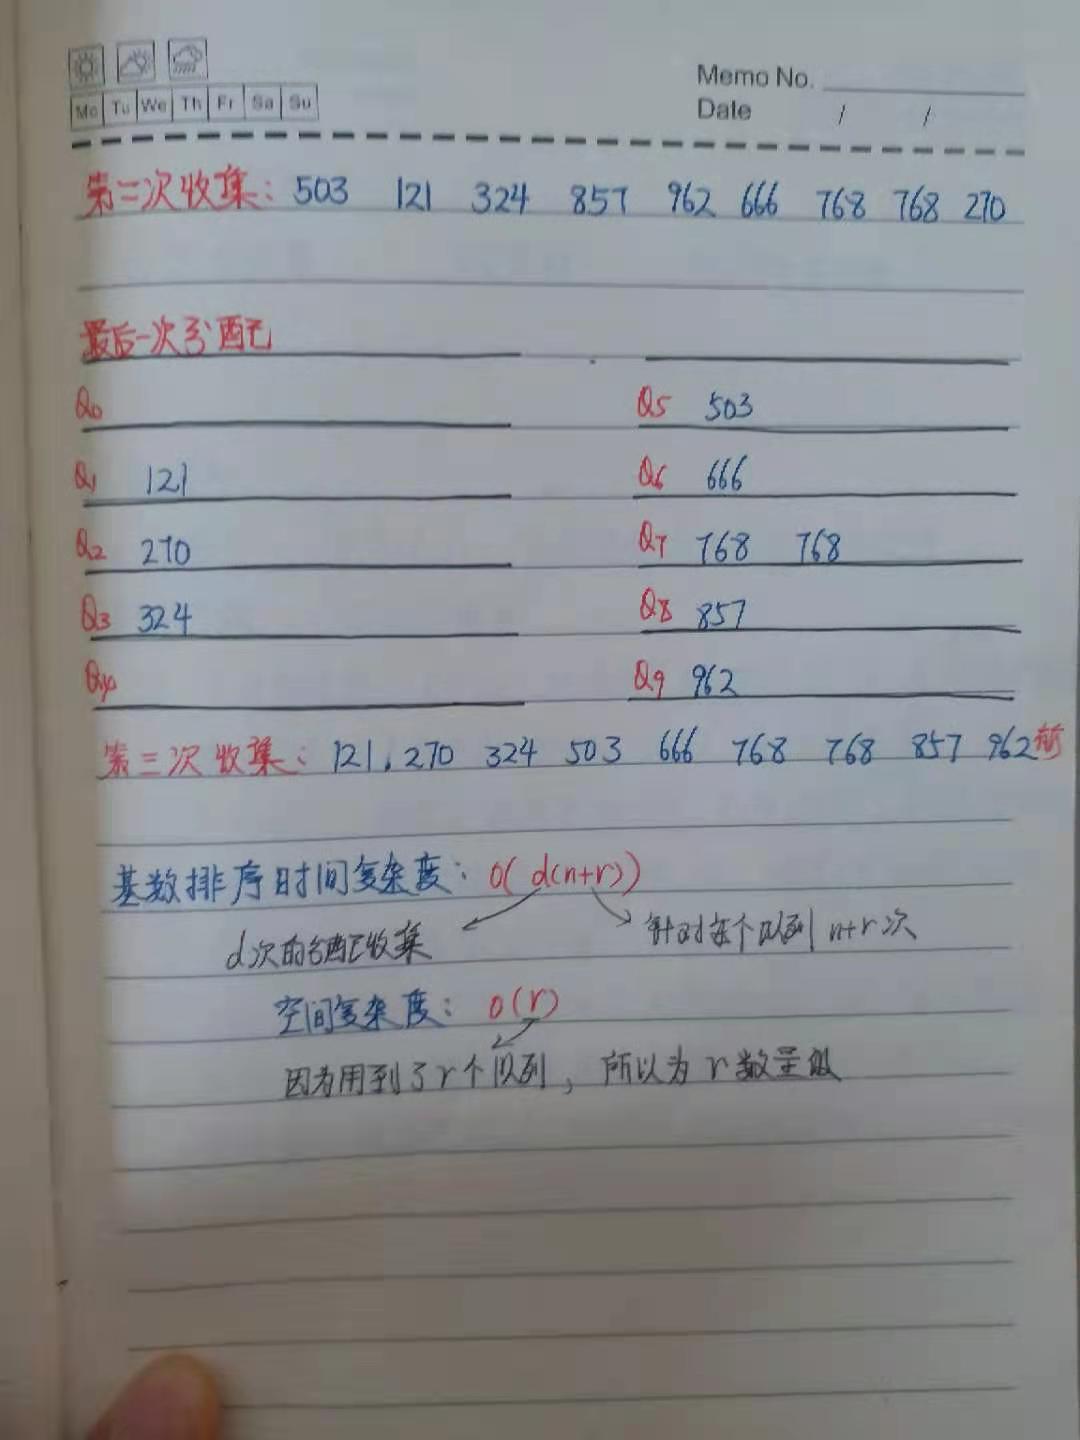 Memo No.
Mo Tu We Th Fr Sa Su
Date / /
第二次收集: 503 121 324 857 962 666 768 768 270
最后一次分配
Q0
Q5 503
Q1 121
Q6 666
Q2 270
Q7 768 768
Q3 324
Q8 857
Q4
Q9 962
第三次收集: 121, 270 324 503 666 768 768 857 962
基数排序时间复杂度: O(d(n+r))
d次的分配收集
针对每个队列 n+r次
空间复杂度: O(r)
因为用到了r个队列, 所以为r数量级